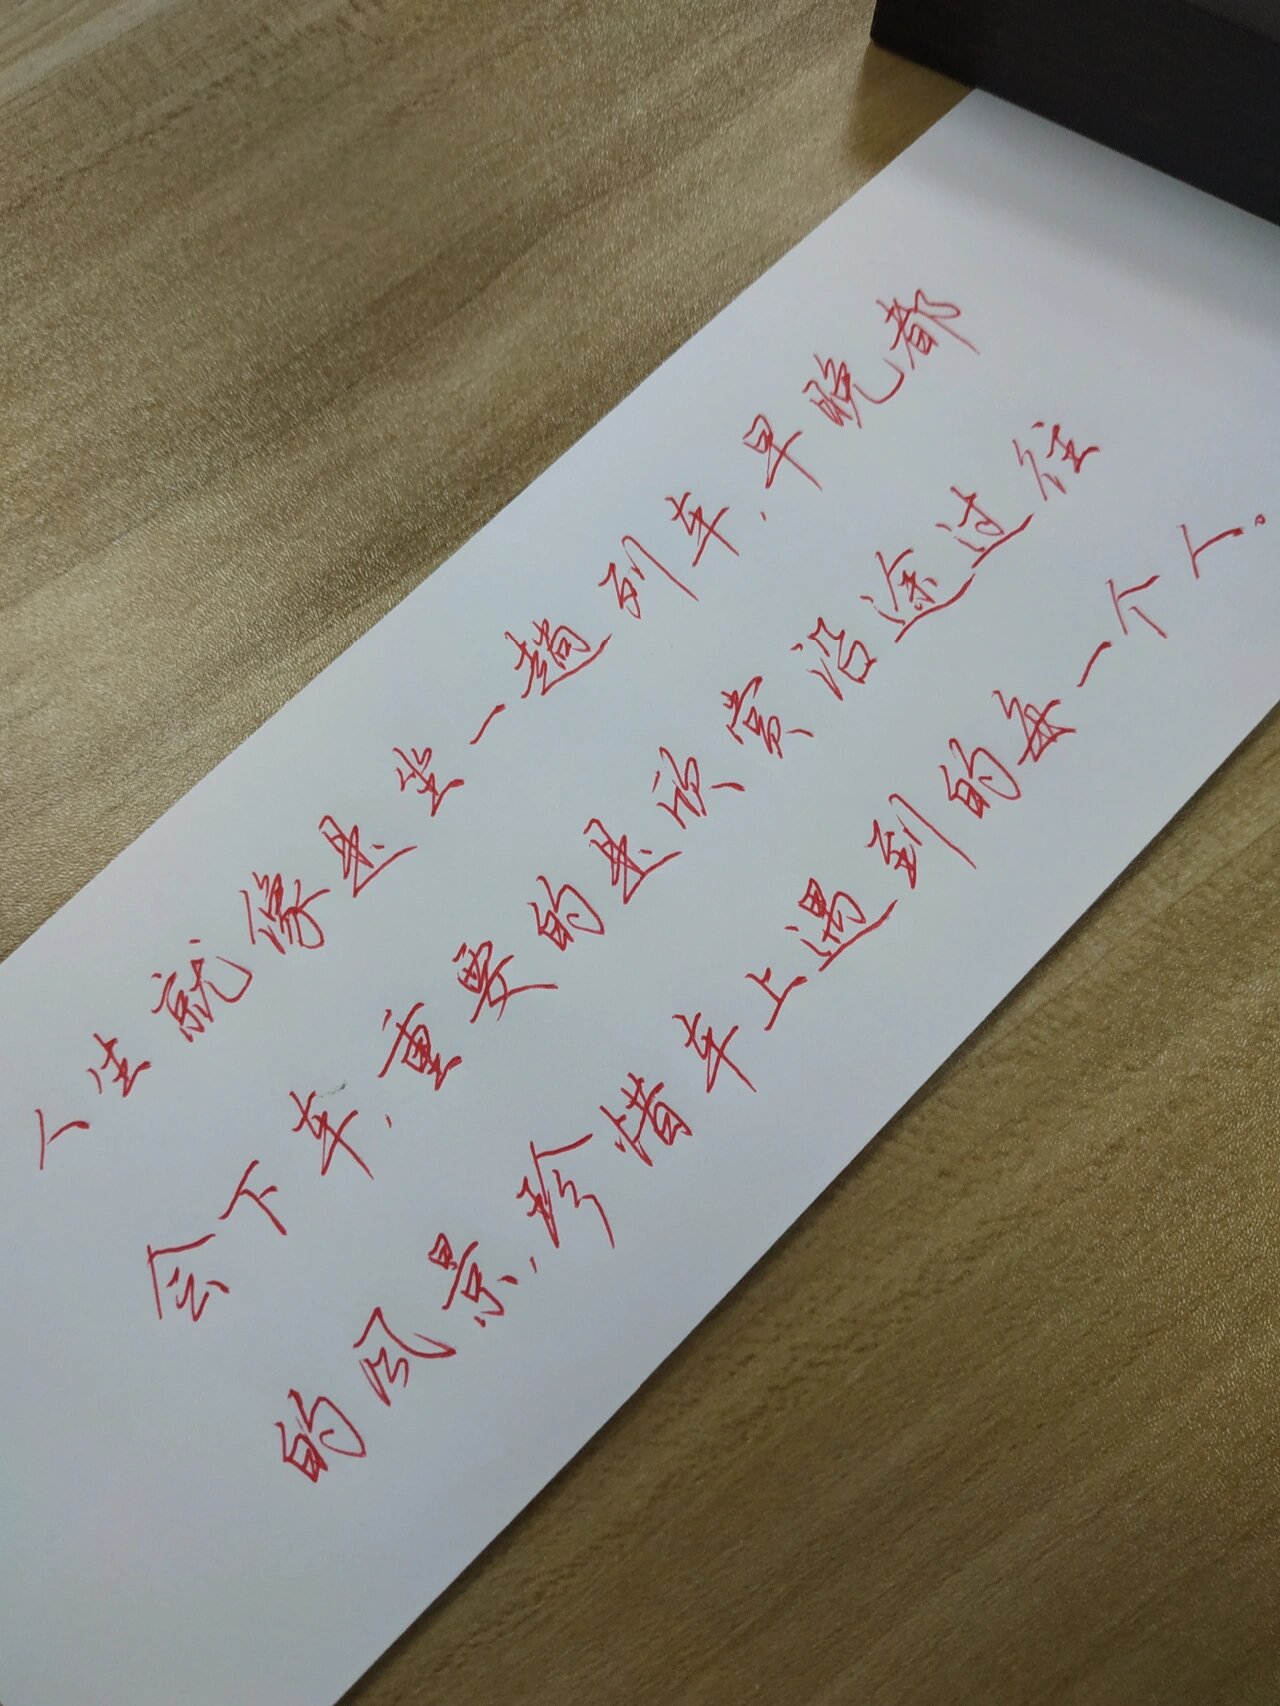 人生就像是坐一趟列车,早晚都
会下车,重要的是欣赏沿途过往
的风景,珍惜车上遇到的每一个人。